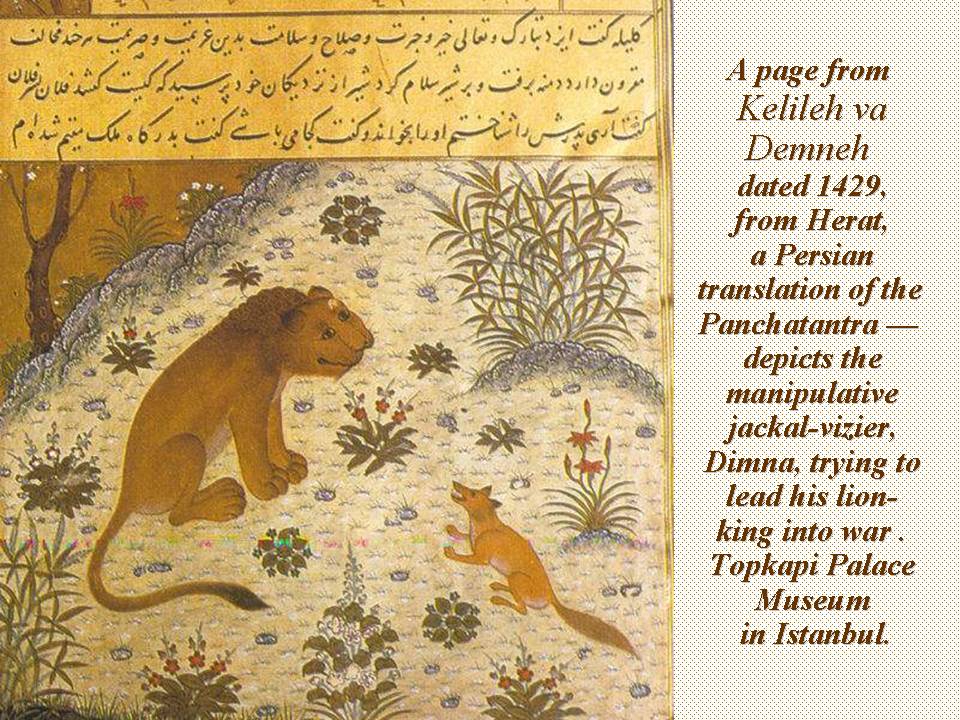 کلیله گفت ایزد تبارک و تعالی خیر و خیرت و صلاح و سلامت بدین عزیمت و هر چند مخالف
مقرون دارد دمنه برفت و بر شیر سلام کرد شیر از نزدیکان خود پرسید که کیست گفتند فلان بن فلان
گفت آری پدرش را شناختم او را بخواند و گفت کجا می باشی گفت بر درگاه ملک مقیم شده ام
A page from
Kelileh va
Demneh
dated 1429,
from Herat,
a Persian
translation of the
Panchatantra —
depicts the
manipulative
jackal-vizier,
Dimna, trying to
lead his lion-
king into war .
Topkapi Palace
Museum
in Istanbul.